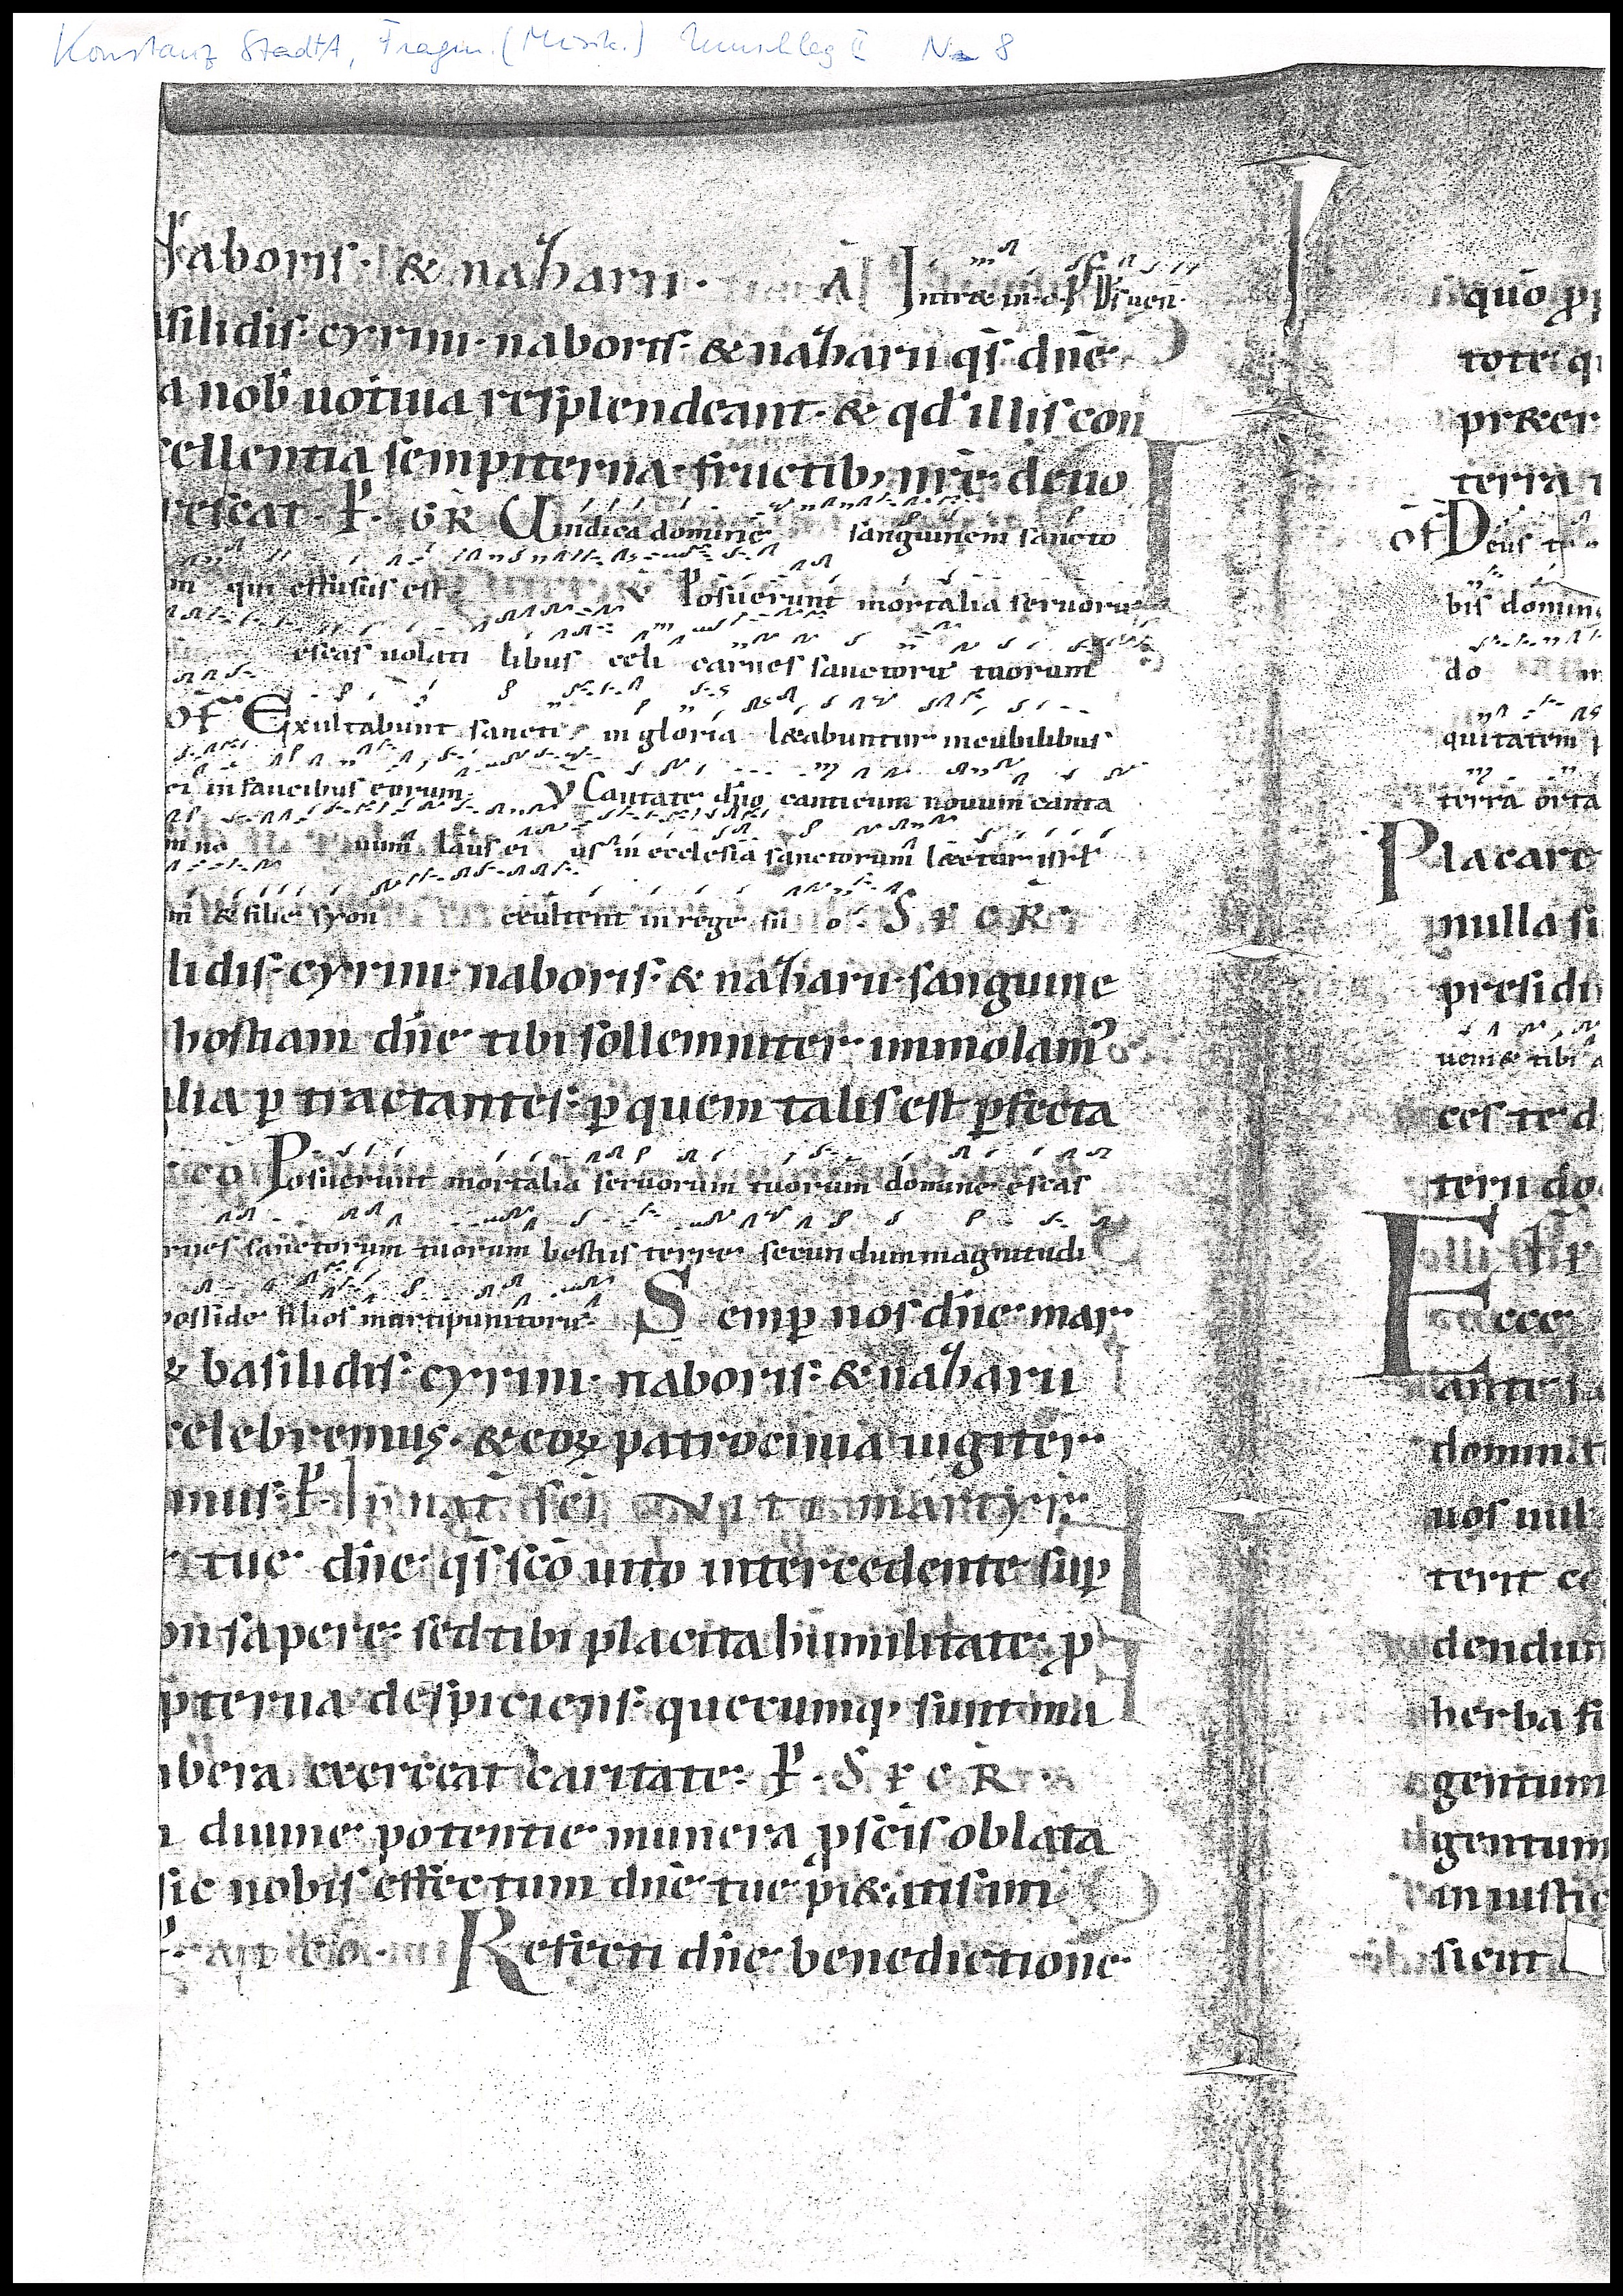 Konstanz StadtA, Fragm. (Musik.) Umschlag II Nr 8
naboris. & nazharii. Intret in
silidis. cyrini. naboris. & nazharii qs dne
a nob uotiua resplendeant. & qd illis con
cellentia sempiterna. fructib; nre deuo
rescat. P. GR Uindica domine sanguinem sancto
m qui effusus est Posuerunt mortalia seruoru
escas uolati libus celi carnes sanctoru tuorum
OF Exultabunt sancti in gloria l&abuntur in cubilibus
ei in faucibus eorum. V Cantate dno canticum nouum canta
laus ei us in ecclesia sanctorum l&etur isrl
m & filie syon exultent in rege su o. SECR
lidis. cyrini. naboris. & nazharii. sanguine
hostiam dne tibi sollemniter immolam'
lia ptractantes. p quem talis est pfecta
CO Posuerunt mortalia seruorum tuorum domine escas
rnes sanctorum tuorum bestiis terre secundum magnitudi
posside filios mortipunitoru. Semp nos dne mar
& basilidis. cyrini. naboris. & nazharii
celebremus. & eoꝝ patrocinia iugiter
mus. P. In nat sci UITI martyr.
tue dne qs sco uito intercedente sup
on sapere. sed tibi placita humilitate p
pterna despiciens. quecumq; sunt
bera exerceat caritate. P. SECR
diuine potentie munera p scis oblata
sic nobis effectum dne tue pi&atis
Refecti dne benedictione
quo
tote q
pr&er
terra
OF Deus t
bis domin
do
quitatem
terra orta
Placare
nulla si
presidi
ueni& tibi
ces te d
terii do
Ecce
ante
dominat
uos nul
terit
dendu
herba
gentum
gentum
in iustic
sicut